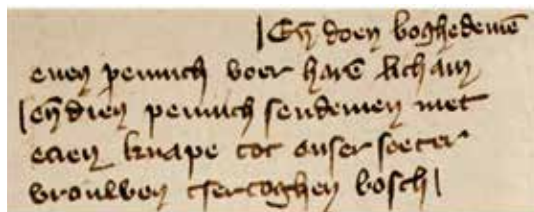 |En̄ doen boghedemē
enen pennich voer harē licham
|en̄ dien pennich sendemen met
enen knape tot onser soeter
vrouwen tsertoghen bosch|